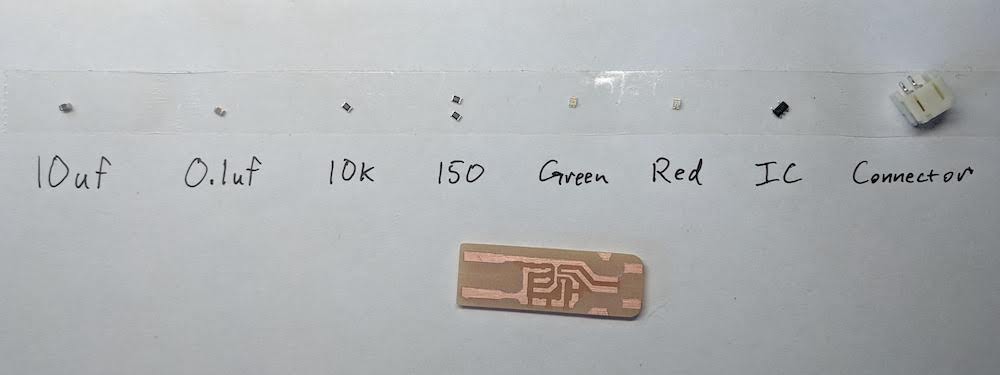 10uf 0.1uf 10K 150 Green Red IC Connector